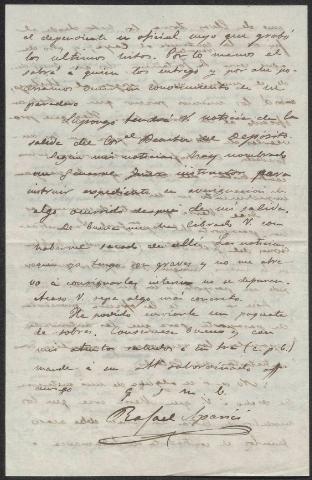 el dependiente u oficial suyo que grabó
los ultimos sitios. Por lo menos el
sabrá á quien los entregó y por ahi po-
driamos en conocimiento de su
paradero
Supongo tendrá V. noticia de la
salida del Cor.el Director del Deposito.
Segun mis noticias hay nombrado
un General Juez instructor para
instruir expediente en averiguacion de
algo ocurrido despues de mi salida.
De buena me he librado V. con
haberme sacado de alli. Las noticias
que ya tengo son graves y no me atre-
vo á consignarlas interin no se depuran.
Acaso V. sepa algo mas concreto.
He pedido enviarle un paquete
de sobres. Consérvese bueno y con
mis atentos saludos á su Sra (c. p. b.)
mande á su aff. subordinado
amigo
q. s. m. b.
Rafael Aparici